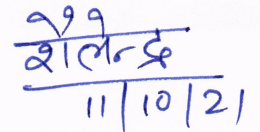 शैलेन्द्र
11/10/21